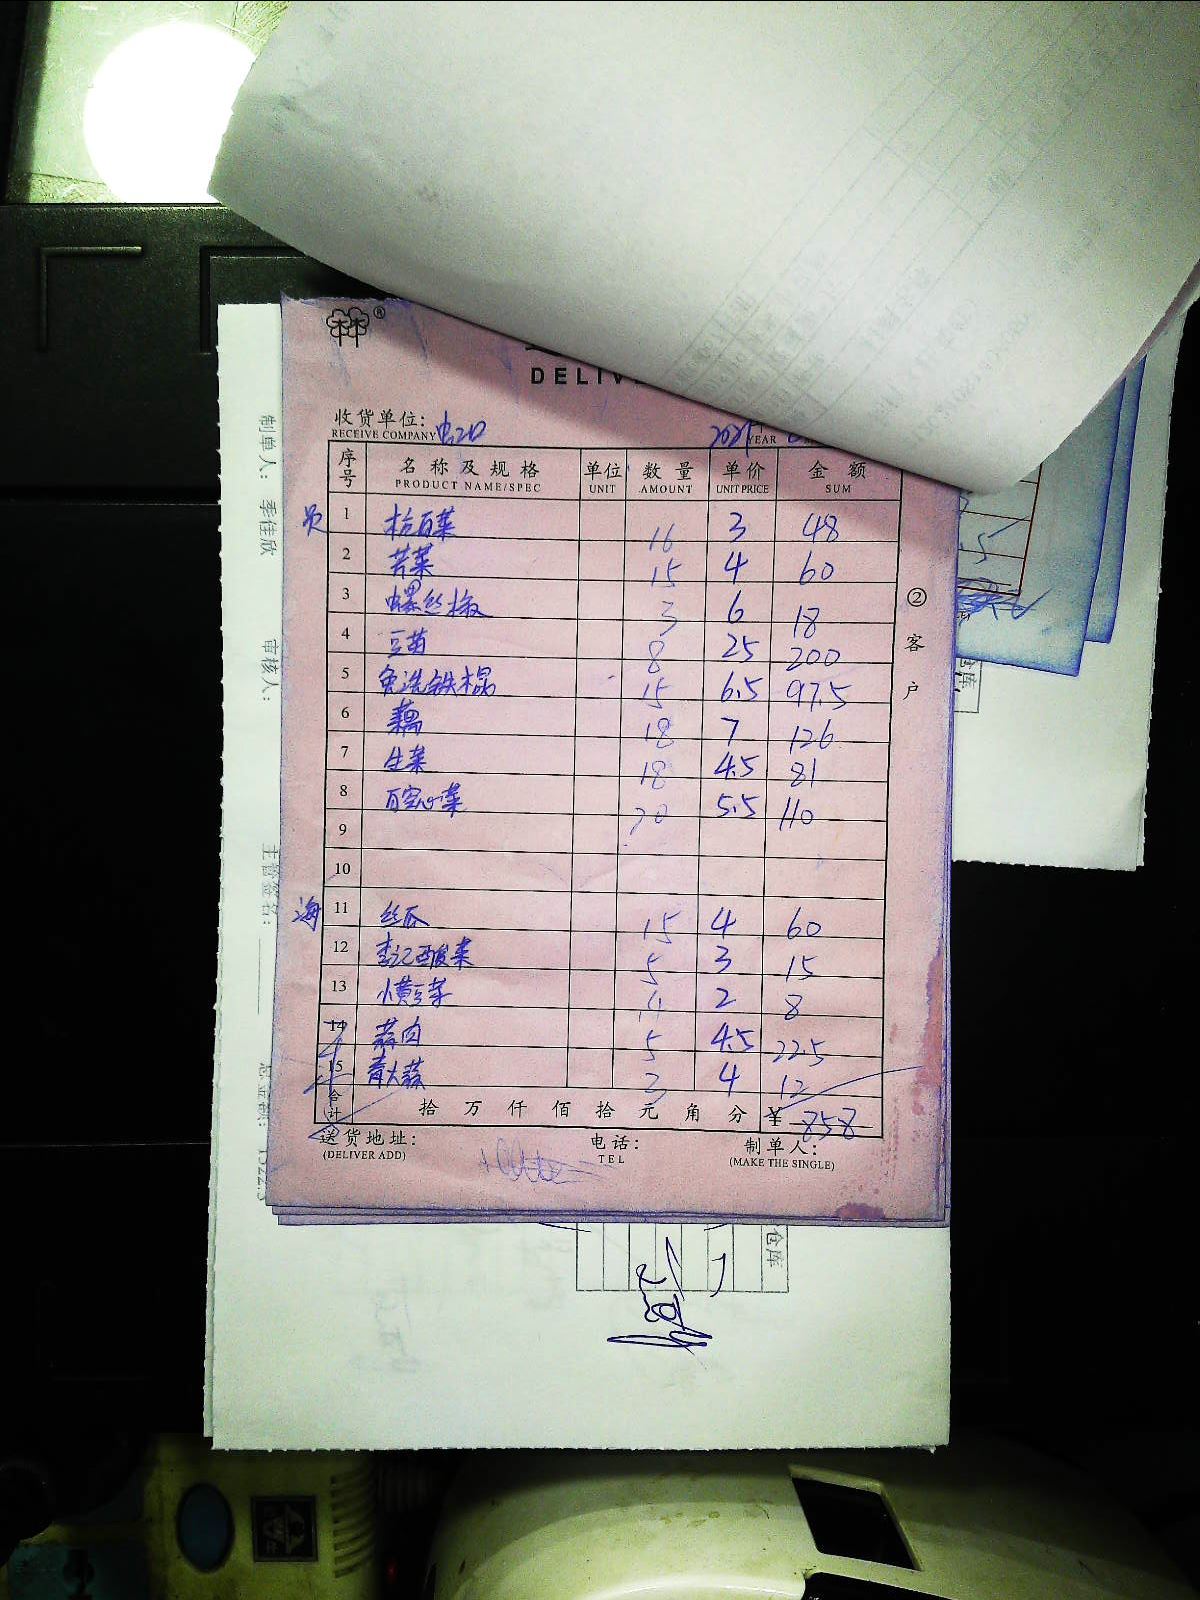 林®
DELIV
收货单位:
RECEIVE COMPANY
YEAR
序号 名称及规格 单位 数量 单价 金额
PRODUCT NAME/SPEC UNIT AMOUNT UNIT PRICE SUM
1 杭百菜 16 3 48
2 苦菜 15 4 60
3 螺丝椒 3 6 18
4 豆苗 8 25 200
5 免洗铁棍 15 6.5 97.5
6 藕 18 7 126
7 生菜 18 4.5 81
8 20 5.5 110
9
10
海
11 丝瓜 15 4 60
12 李记酸菜 5 3 15
13 小黄豆芽 4 2 8
14 蒜肉 5 4.5 22.5
15 青大蒜 3 4 12
合计 拾 万 仟 佰 拾 元 角 分 ¥ 858
送货地址: 电话: 制单人:
(DELIVER ADD) TEL (MAKE THE SINGLE)
②客户
制单人: 季佳欣
审核人:
主管签名:
总金额: 1522.5
仓库
仓库